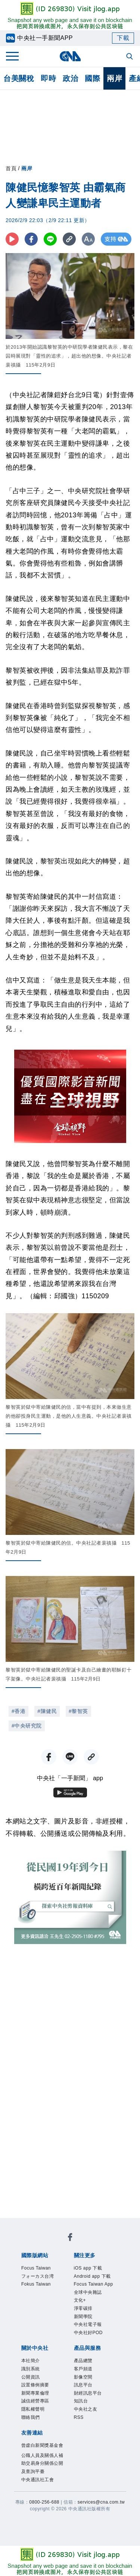 (ID 269830) Visit jlog.app
Snapshot any web page and save it on blockchain
把网页转换成图片，永久保存和公共区块链
中央社一手新聞APP
下載
台美關稅 即時 政治 國際 兩岸 產經
首頁 / 兩岸
陳健民憶黎智英 由霸氣商
人變謙卑民主運動者
2026/2/9 22:03（2/9 22:11 更新）
支持
於2013年開始認識黎智英的中研院學者陳健民表示，黎在
囚時展現對「靈性的追求」，超出他的想像。中央社記者
裴禛攝　115年2月9日
（中央社記者陳鎧妤台北9日電）針對壹傳
媒創辦人黎智英今天被重判20年，於2013年
開始認識黎智英的中研院學者陳健民表示，
當時覺得黎智英有一種「大老闆的霸氣」，
後來黎智英在民主運動中變得謙卑，之後在
囚時甚至展現到「靈性的追求」，超出他的
想像。
「占中三子」之一、中央研究院社會學研究
所客座研究員陳健民今天接受中央社記者電
話訪問時回憶，他2013年籌備「占中」運動
時，就「占中」運動交流意見，「他那種
大老闆的作風，有時候你會覺得他很霸氣，
你會覺得他有些粗魯，例如他會講很多話，
我都不太習慣」。
陳健民說，後來黎智英知道在民主運動中，
不能有大老闆的作風，慢慢變得謙卑，如會
在半夜與大家一起參與宣傳民主的毅行活動，
在破舊的地方吃夢餐休息，完全沒有了大老闆
的氣焰。
黎智英被收押後，因非法集結罪及欺詐罪
被囚，身處獄中。
陳健民在香港時曾到監獄探視黎智英，感到
黎智英像被「純化了」，「我完全不想像，
他可以變得這麼有靈性」。
陳健民說，自己坐牢時習慣晚上看些輕鬆的
書籍，有助入睡。他曾向黎智英提議寄給他
一些輕鬆的小說，黎智英說不需要，因為晚上
會讀經，如天主教的玫瑰經，說「我已經覺得
很好，我覺得很幸福」，黎智英甚至曾說，
「我沒有最好的食物，沒有好的衣服，反而
可以專注在自己的靈魂」。
陳健民說，黎智英出現如此大的轉變，超出
他想像。
黎智英寄給陳健民的其中一封信有寫道：
「謝謝你再來探訪我，我大大不慚說了天主
降大任於人，事後有點汗顏。但這確是我的
心底說話。大難不死能夠走到今天站在耶穌
之身前，分擔祂的受難和分享祂的光榮，做
人生奇妙，但並不是始料不及」。
信中又寫道：「做生意是我天生本能，但根
本著天生樂觀，積極進取和愛自由，也是不期
因而投進了爭取民主自由的抗爭中，這一刻
生意本來沒有給我的人生意義，我真是幸運
兒」。
優質國際影音新聞
盡在 全球視野
全球視野
陳健民又說，他曾問黎智英為什麼不離開
香港，黎說「我的生命是屬於香港，不屬於
我自己，因為一切都是香港給我的」。黎
智英在獄中表現精神意志很堅定，但當說到
家人時，頓時崩潰。
不少人對黎智英的判刑感到難過，陳健民
表示，黎智英以前曾說不要當他是烈士，
「可能他還帶有一點希望，覺得不一定在監
裡面，世界會變的，我覺得他未放棄這種希
望，他總是說希望將來跟我在台灣見」。
（編輯：邱國強）1150209
黎智英於獄中寄給陳健民的信，當中有提到，本來做生意
的他卻投身民主運動，是他的人生意義。中央社記者裴禛
攝　115年2月9日
黎智英於獄中寄給陳健民的信。中央社記者裴禛攝　115
年2月9日
黎智英於獄中寄給陳健民的聖誕卡及自己繪畫的耶穌釘十
字架像。中央社記者裴禛攝　115年2月9日
#香港 #陳健民 #黎智英
#中央研究院
中央社「一手新聞」 app
Google Play
本網站之文字、圖片及影音，非經授權，
不得轉載、公開播送或公開傳輸及利用。
從民國13年到今日
橫跨近百年新聞紀錄
國際版網站
Focus Taiwan
フォーカス台湾
Fokus Taiwan
關注更多
iOS app 下載
Android app 下載
Focus Taiwan App
全球中央雜誌
文化+
淨零碳排
影新聞
中央社電子報
中央社好POD
RSS
關於中央社
本社簡介
識別系統
公開資訊
設置條例摘要
新聞專業倫理
誠信經營專區
隱私權聲明
聯絡我們
產品與服務
產品總覽
客戶頻道
影像空間
訊息平台
財經訊息平台
知訊台
中央社之友
友善連結
壹趣出新聞獎基金會
公職人員及關係人補
助交易身份關係公開
及查詢平臺
中央通訊社工會
總機：0800-256-688｜信箱：services@cna.com.tw
copyright © 2026 中央通訊社版權所有
(ID 269830) Visit jlog.app
Snapshot any web page and save it on blockchain
把网页转换成图片，永久保存和公共区块链